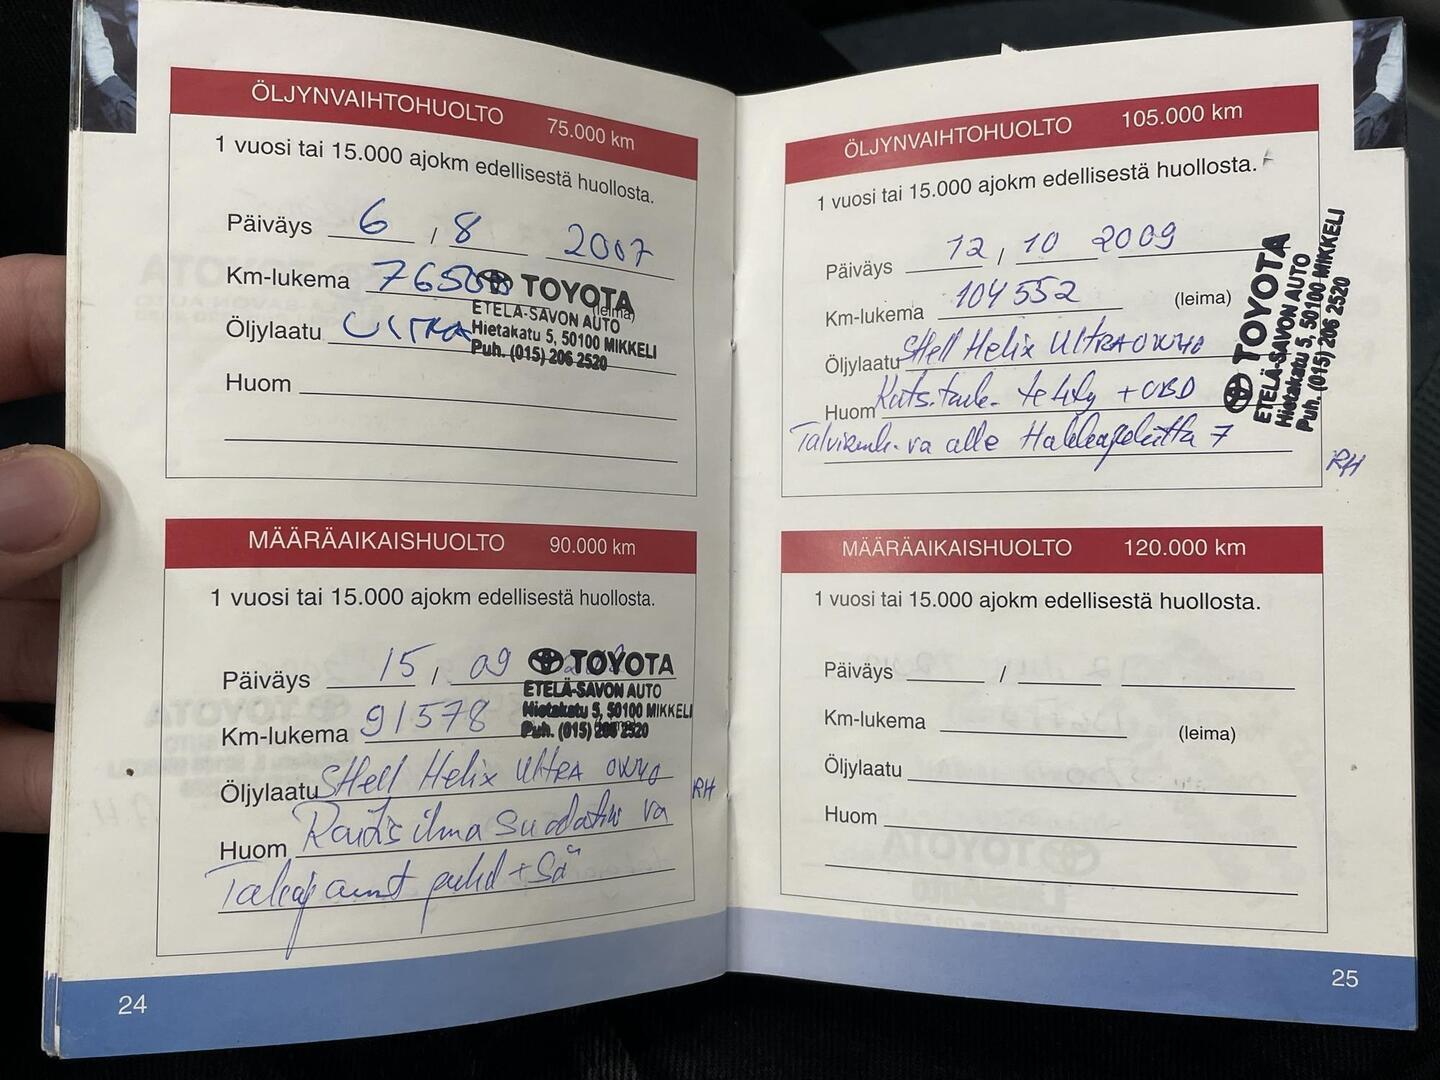 ÖLJYNVAIHTOHUOLTO 75.000 km
1 vuosi tai 15.000 ajokm edellisestä huollosta.
Päiväys 6 / 8 2007
Km-lukema 76500 (leima)
Öljylaatu ULTRA
Huom
TOYOTA
ETELÄ-SAVON AUTO
Hietakatu 5, 50100 MIKKELI
Puh. (015) 206 2520
MÄÄRÄAIKAISHUOLTO 90.000 km
1 vuosi tai 15.000 ajokm edellisestä huollosta.
Päiväys 15 / 09
Km-lukema 91578
Öljylaatu SHell Helix Ultra 0W40
RH
Huom Raitisilma suodatin va
Takajarrut puhd + Sä
TOYOTA
ETELÄ-SAVON AUTO
Hietakatu 5, 50100 MIKKELI
Puh. (015) 206 2520
24
ÖLJYNVAIHTOHUOLTO 105.000 km
1 vuosi tai 15.000 ajokm edellisestä huollosta.
Päiväys 12 / 10 2009
Km-lukema 104552 (leima)
Öljylaatu SHell Helix Ultra 0W40
Huom Kats.tark. tehty + OBD
Talvirenk. va alle Hakkapeliitta 7
RH
TOYOTA
ETELÄ-SAVON AUTO
Hietakatu 5, 50100 MIKKELI
Puh. (015) 206 2520
MÄÄRÄAIKAISHUOLTO 120.000 km
1 vuosi tai 15.000 ajokm edellisestä huollosta.
Päiväys /
Km-lukema (leima)
Öljylaatu
Huom
25